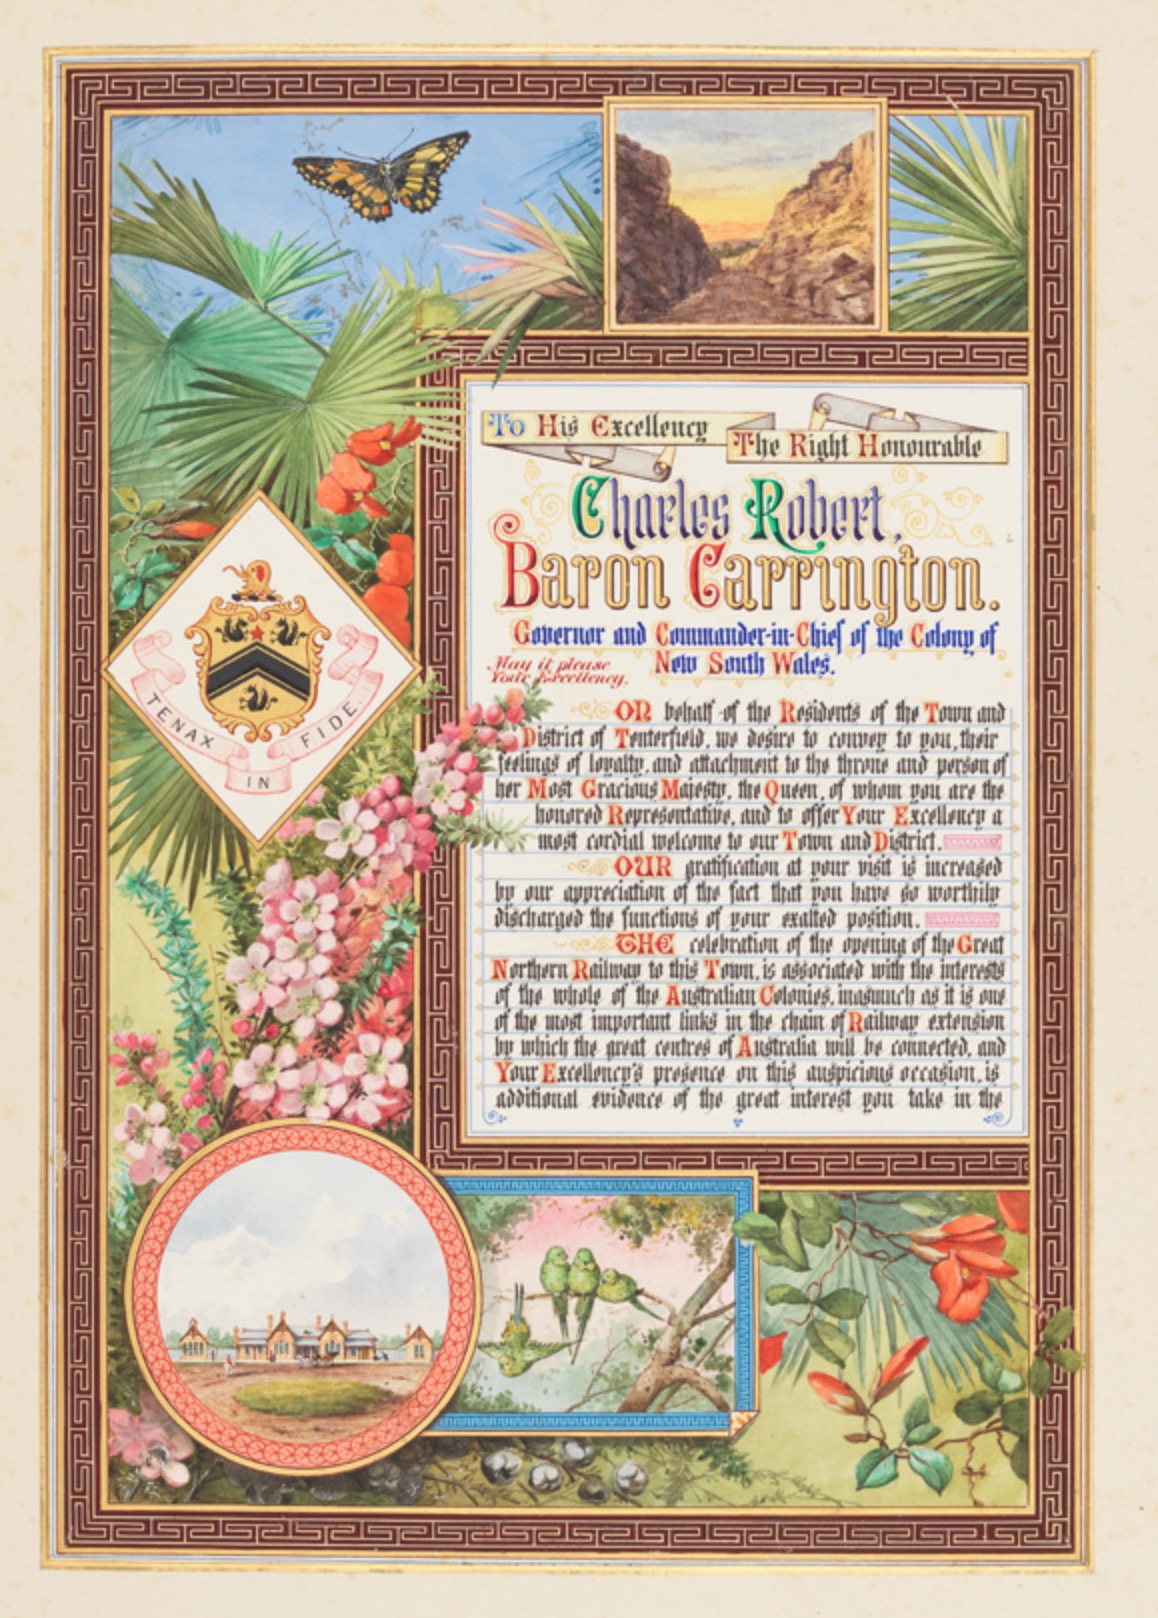 To His Excellency
The Right Honourable
Charles Robert,
Baron Carrington.
Governor and Commander-in-Chief of the Colony of
New South Wales.
May it please
Your Excellency,
ON behalf of the Residents of the Town and
District of Tenterfield, we desire to convey to you, their
feelings of loyalty, and attachment to the throne and person of
her Most Gracious Majesty, the Queen, of whom you are the
honored Representative, and to offer Your Excellency a
most cordial welcome to our Town and District.
OUR gratification at your visit is increased
by our appreciation of the fact that you have so worthily
discharged the functions of your exalted position.
THE celebration of the opening of the Great
Northern Railway to this Town, is associated with the interests
of the whole of the Australian Colonies, inasmuch as it is one
of the most important links in the chain of Railway extension
by which the great centres of Australia will be connected, and
Your Excellency's presence on this auspicious occasion, is
additional evidence of the great interest you take in the
TENAX
IN
FIDE.